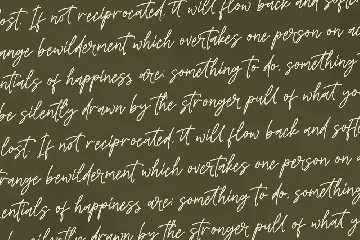 lost. If not reciprocated, it will flow back and soft
range bewilderment which overtakes one person on ac
entials of happiness are: something to do, something
be silently drawn by the stronger pull of what yo
lost. If not reciprocated, it will flow back and soft
range bewilderment which overtakes one person on
entials of happiness are: something to do, something
silently drawn by the stronger pull of what y